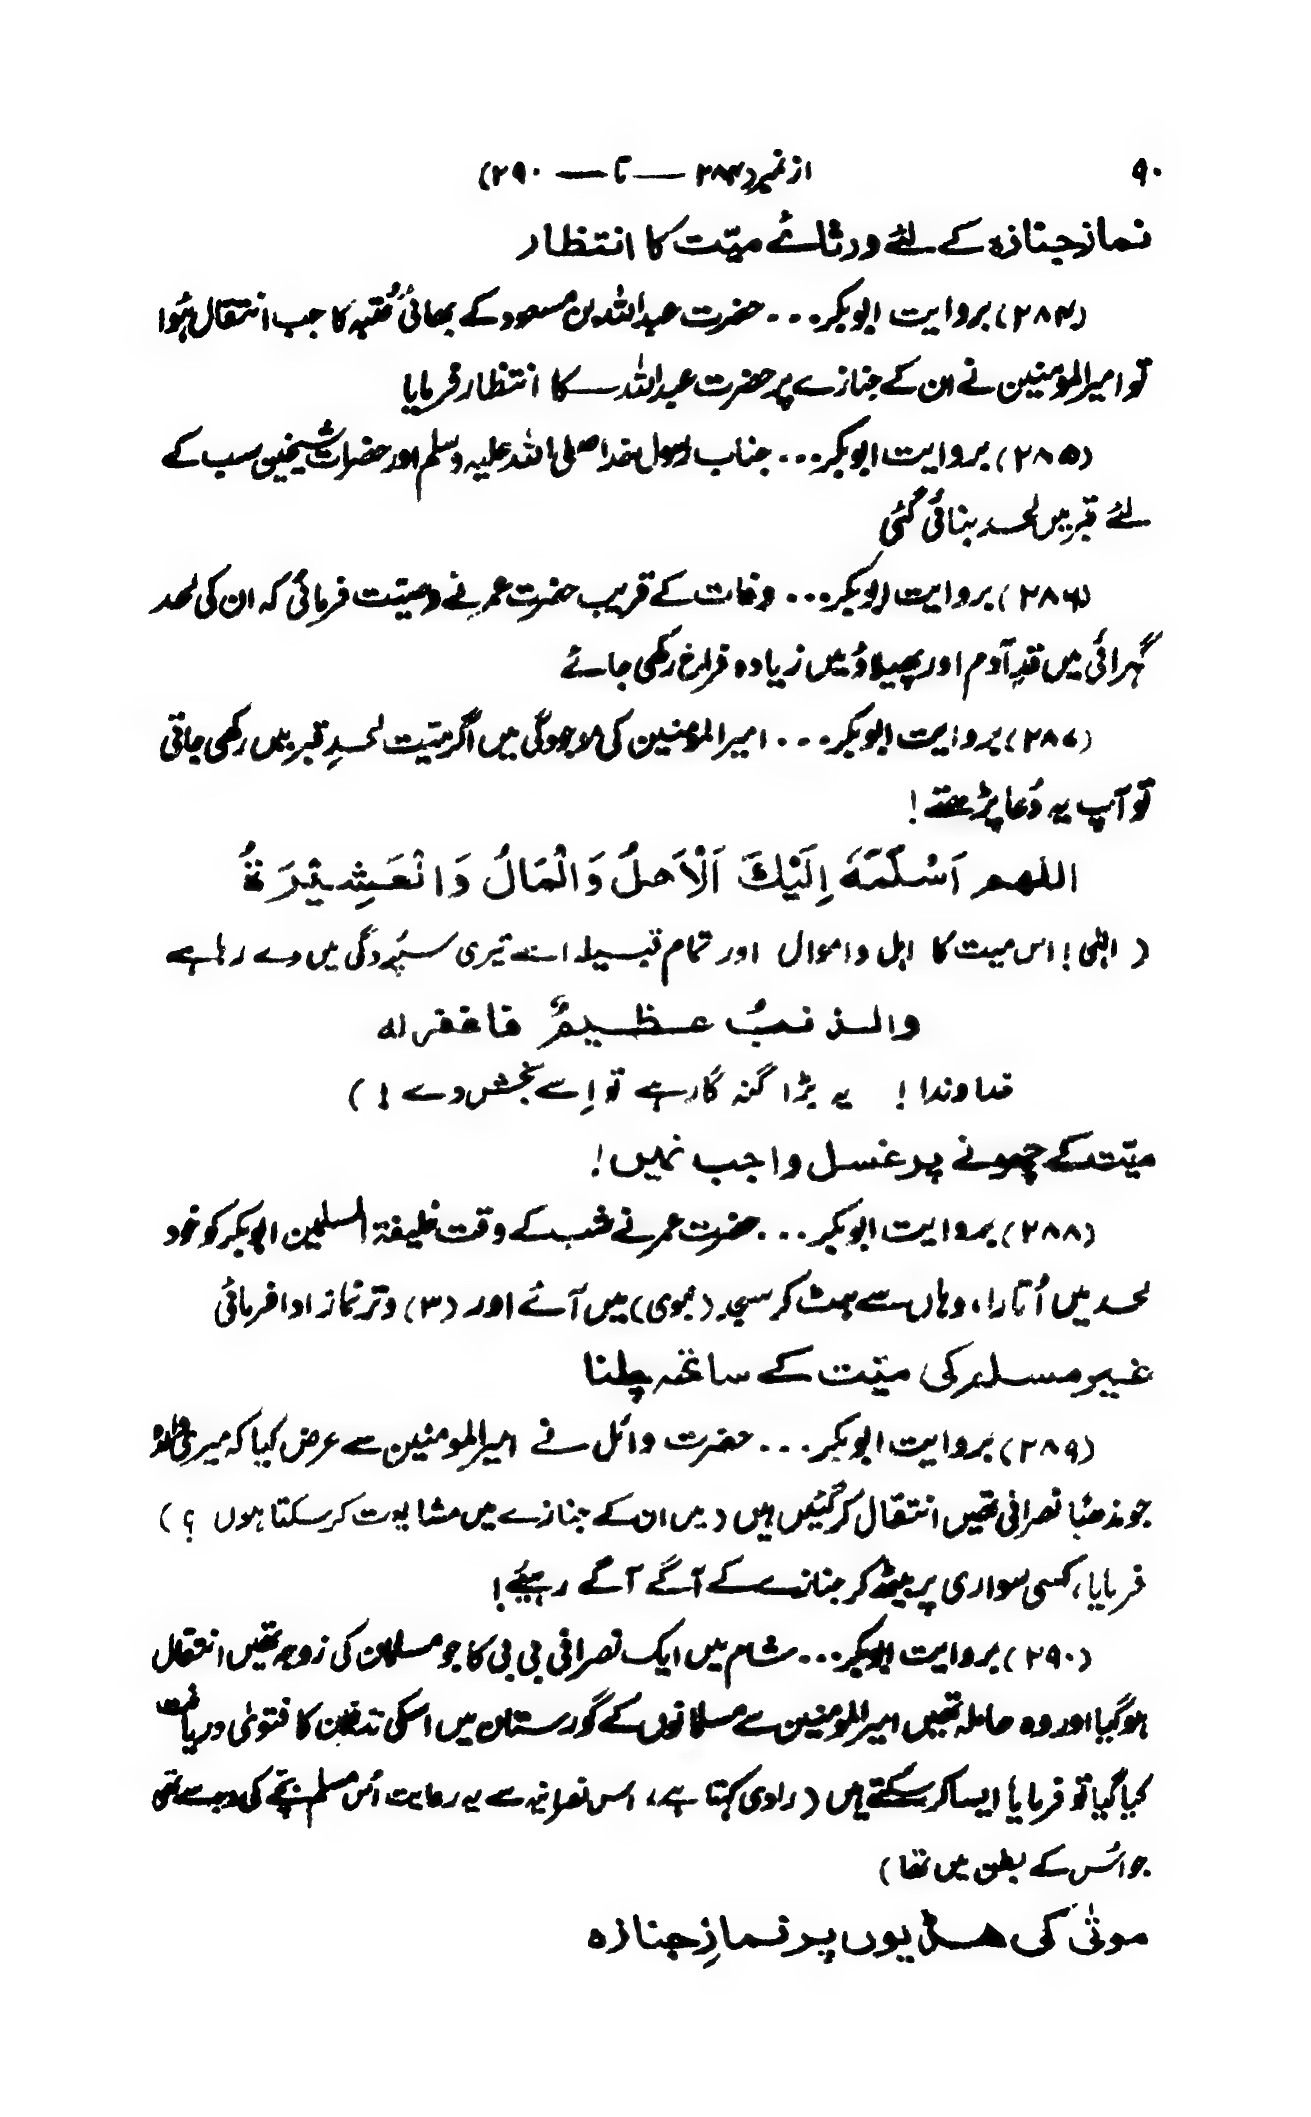 ۹۰ از نمبر (۲۸۴ — تا — ۲۹۰)
نماز جنازہ کے لئے ورثائے میّت کا انتظار
(۲۸۴) بروایت ابوبکر... حضرت عبداللہ بن مسعود کے بھائی عُتبہ کا جب انتقال ہُوا
تو امیرالمومنین نے ان کے جنازے پر حضرت عبداللہ کا انتظار فرمایا
(۲۸۵) بروایت ابوبکر... جناب رسول خدا صلی اللہ علیہ وسلم اور حضرات شیخین سب کے
لئے قبر میں لحد بنائی گئی
(۲۸۶) بروایت ابوبکر... وفات کے قریب حضرت عمر نے وصیّت فرمائی کہ ان کی لحد
گہرائی میں قدِ آدم اور پھیلاؤ میں زیادہ فراخ رکھی جائے
(۲۸۷) بروایت ابوبکر... امیرالمومنین کی موجودگی میں اگر میّت لحدِ قبر میں رکھی جاتی
تو آپ یہ دُعا پڑھتے !
اللھم اَسْلَمَہٗ اِلَیْكَ اَلْاَھلُ وَالْمَالُ وَالْعَشِیْرَۃُ
( الٰہی ! اس میت کا اہل و اموال اور تمام قبیلہ اسے تیری سپُردگی میں دے رہا ہے
والذنبُ عظیمٌ فاغفر لہ
خداوندا ! یہ بڑا گنہ گار ہے تو اِسے بخش دے ! )
میّت کے چھونے پر غسل واجب نہیں!
(۲۸۸) بروایت ابوبکر... حضرت عمر نے شب کے وقت خلیفۃ المسلمین ابوبکر کو خود
لحد میں اُتارا، وہاں سے ہٹ کر مسجد (نبوی) میں آئے اور (۳) وتر نماز ادا فرمائی
غیر مسلم کی میّت کے ساتھ چلنا
(۲۸۹) بروایت ابوبکر... حضرت وائل نے امیرالمومنین سے عرض کیا کہ میری والدہ
جو مذھبًا نصرانی تھیں انتقال کر گئیں ہیں (میں ان کے جنازے میں مشایعت کر سکتا ہوں ؟)
فرمایا، کسی سواری پر بیٹھ کر جنازے کے آگے آگے رہیئے!
(۲۹۰) بروایت ابوبکر... شام میں ایک نصرانی بی بی کا جو مسلمان کی زوجہ تھیں انتقال
ہوگیا اور وہ حاملہ تھیں امیرالمومنین سے مسلمانوں کے گورستان میں اسکی تدفین کا فتویٰ دریافت
کیا گیا تو فرمایا ایسا کر سکتے ہیں ( راوی کہتا ہے، اس نصرانیہ سے یہ رعایت اُس مسلم بچّے کی وجہ سے تھی
جو اُس کے بطن میں تھا )
موتٰی کی ھڈیوں پر نمازِ جنازہ